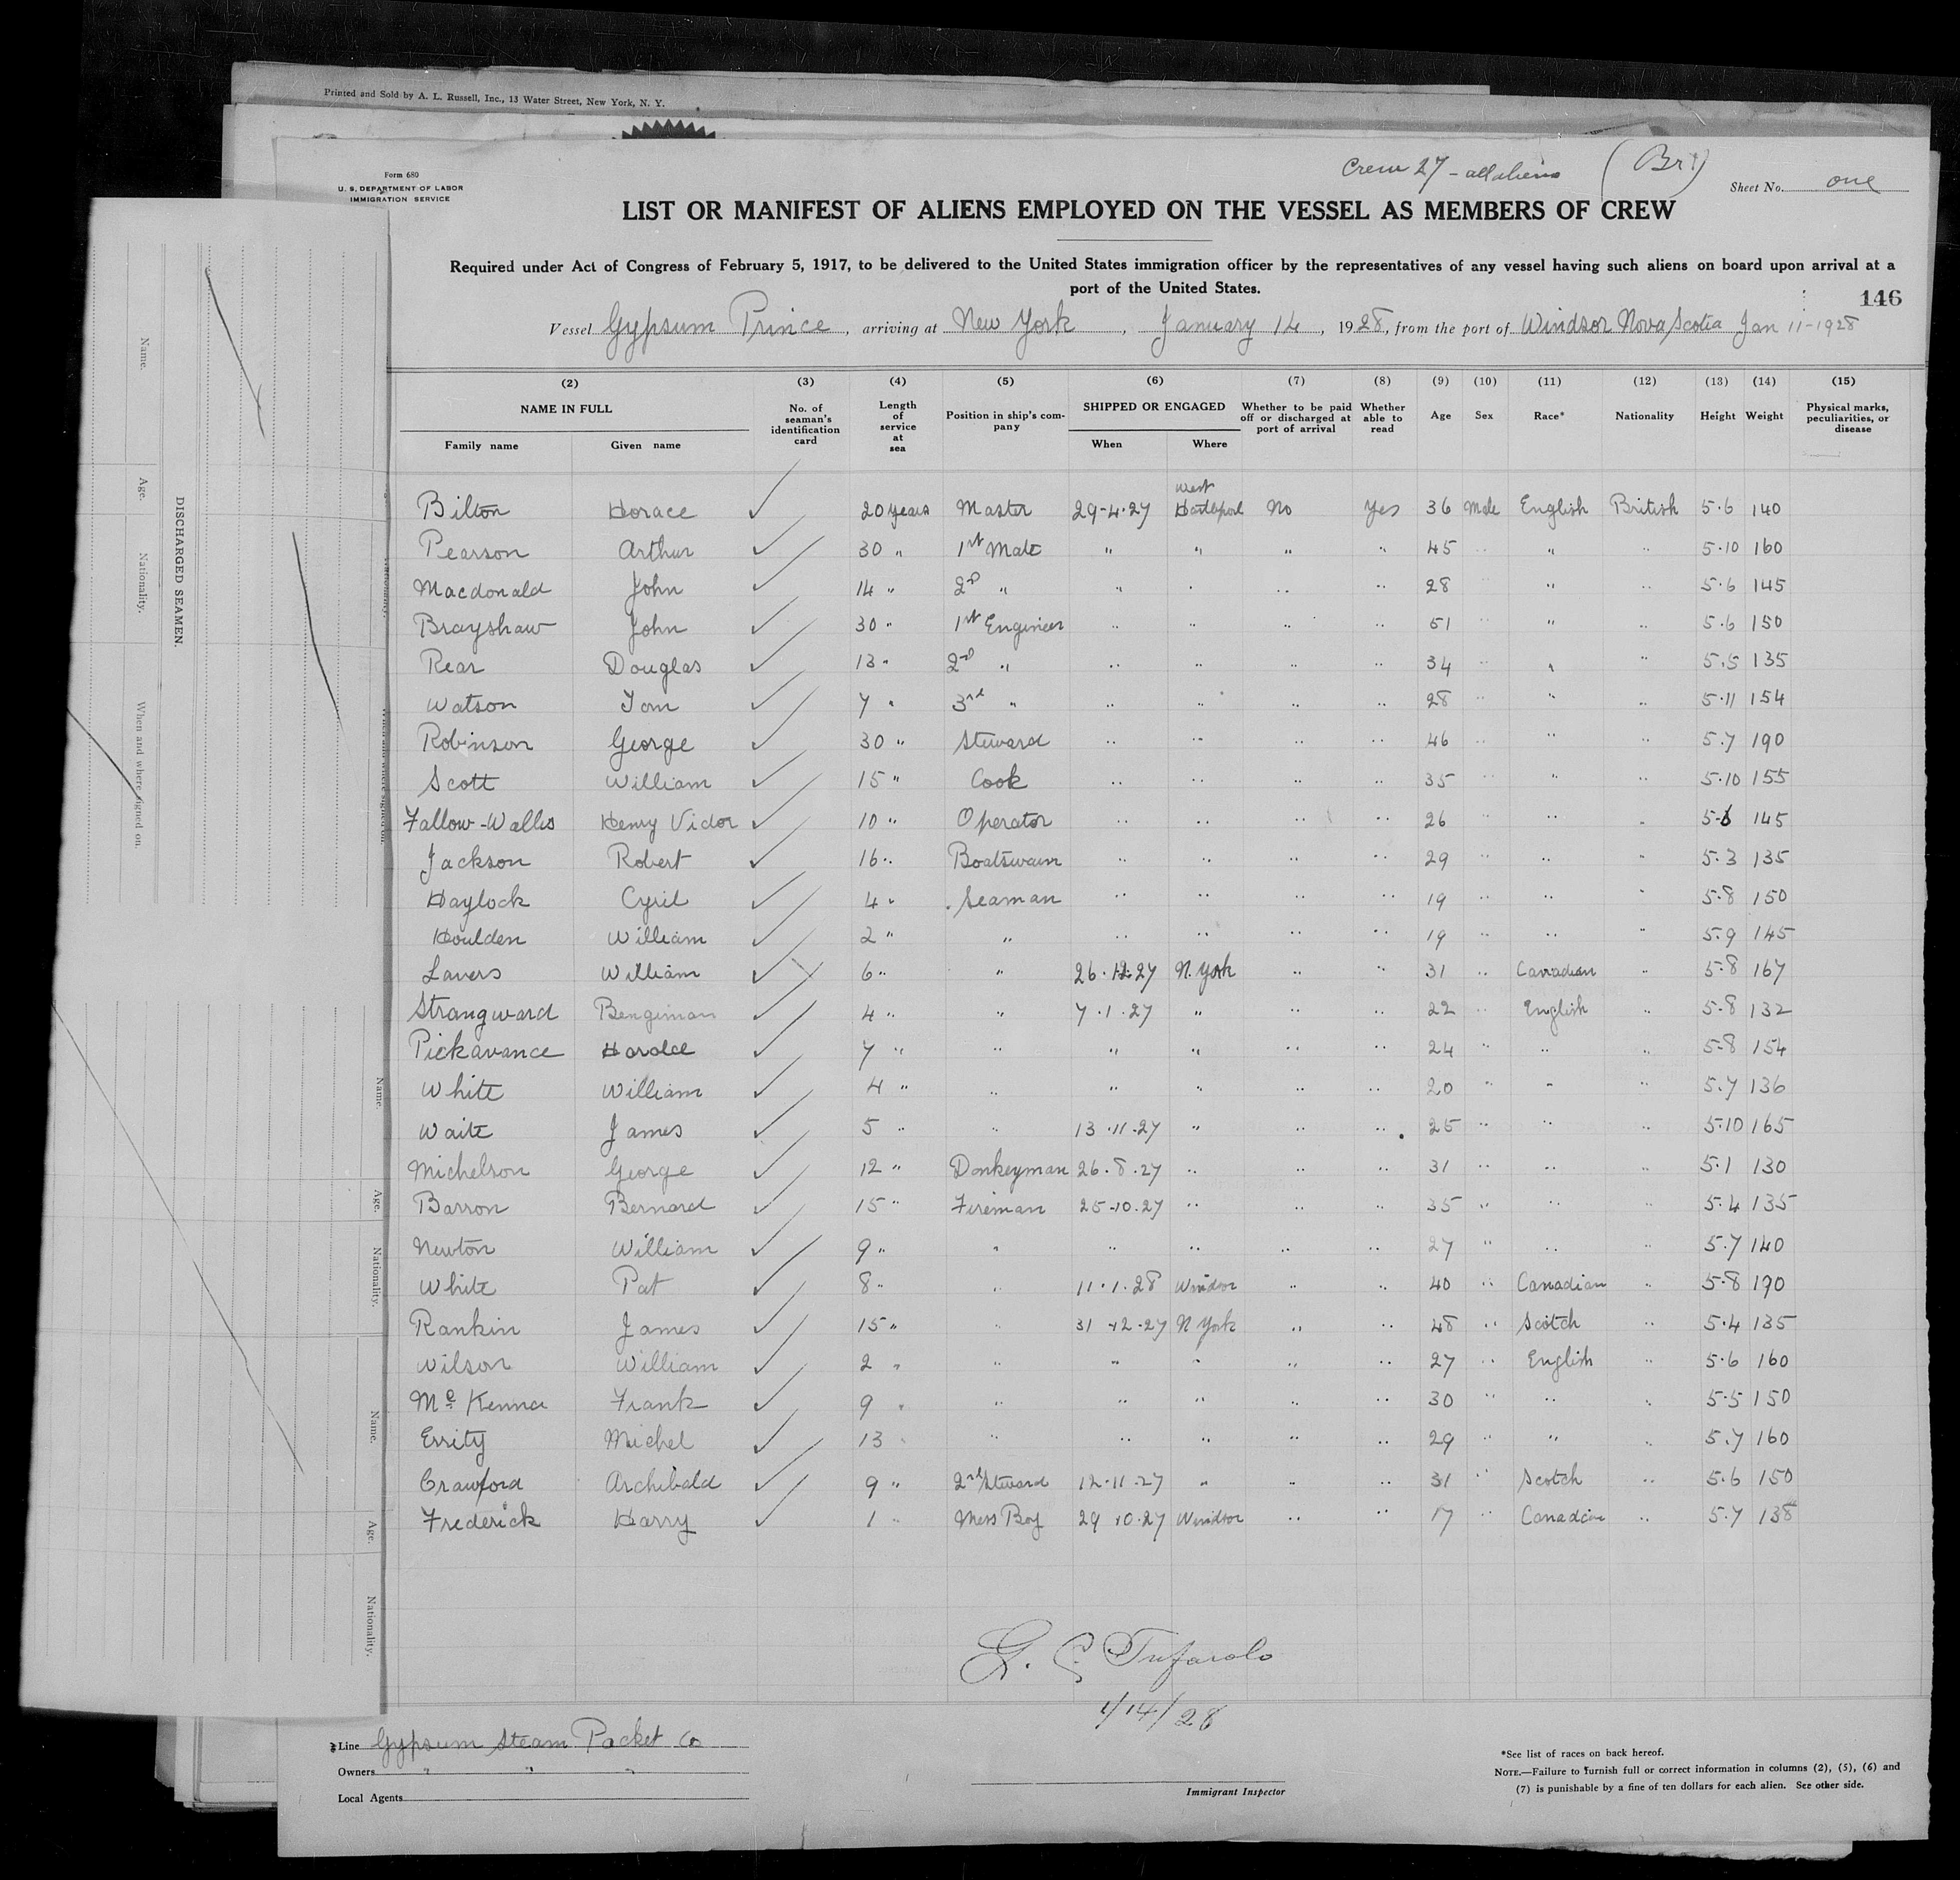 Printed and Sold by A. L. Russell, Inc., 13 Water Street, New York, N. Y.
Form 680
U. S. DEPARTMENT OF LABOR
IMMIGRATION SERVICE
Crew 27 - all aliens (Br)
Sheet No. one
LIST OR MANIFEST OF ALIENS EMPLOYED ON THE VESSEL AS MEMBERS OF CREW
Required under Act of Congress of February 5, 1917, to be delivered to the United States immigration officer by the representatives of any vessel having such aliens on board upon arrival at a
port of the United States.
146
Vessel Gypsum Prince, arriving at New York, January 14, 1928, from the port of Windsor Nova Scotia Jan 11-1928
(2) (3) (4) (5) (6) (7) (8) (9) (10) (11) (12) (13) (14) (15)
NAME IN FULL No. of seaman's identification card Length of service at sea Position in ship's company SHIPPED OR ENGAGED Whether to be paid off or discharged at port of arrival Whether able to read Age Sex Race* Nationality Height Weight Physical marks, peculiarities, or disease
Family name Given name When Where
Bilton Horace ✓ 20 years Master 29-4-27 West Hartlepool No Yes 36 Male English British 5.6 140
Pearson Arthur ✓ 30 " 1st Mate " " " " 45 " " " 5.10 160
Macdonald John ✓ 14 " 2nd " " " " " 28 " " " 5.6 145
Brayshaw John ✓ 30 " 1st Engineer " " " " 51 " " " 5.6 150
Rear Douglas ✓ 13 " 2nd " " " " " 34 " " " 5.5 135
Watson Tom ✓ 7 " 3rd " " " " " 28 " " " 5.11 154
Robinson George ✓ 30 " Steward " " " " 46 " " " 5.7 190
Scott William ✓ 15 " Cook " " " " 35 " " " 5.10 155
Fallow-Wallis Henry Victor ✓ 10 " Operator " " " " 26 " " " 5-6 145
Jackson Robert ✓ 16 " Boatswain " " " " 29 " " " 5.3 135
Haylock Cyril ✓ 4 " Seaman " " " " 19 " " " 5.8 150
Houlden William ✓ 2 " " " " " " 19 " " " 5.9 145
Lavers William ✓ 6 " " 26.12.27 N. York " " 31 " Canadian " 5.8 167
Strangward Bengiman ✓ 4 " " 7.1.27 " " " 22 " English " 5.8 132
Pickavance Harold ✓ 7 " " " " " " 24 " " " 5.8 154
White William ✓ 4 " " " " " " 20 " " " 5.7 136
Waite James ✓ 5 " " 13.11.27 " " " 25 " " " 5.10 165
Michelson George ✓ 12 " Donkeyman 26.8.27 " " " 31 " " " 5.1 130
Barron Bernard ✓ 15 " Fireman 25-10.27 " " " 35 " " " 5.4 135
Newton William ✓ 9 " " " " " " 27 " " " 5.7 140
White Pat ✓ 8 " " 11.1.28 Windsor " " 40 " Canadian " 5.8 190
Rankin James ✓ 15 " " 31-12-27 N York " " 48 " Scotch " 5.4 135
Wilson William ✓ 2 " " " " " " 27 " English " 5.6 160
McKenna Frank ✓ 9 " " " " " " 30 " " " 5.5 150
Errity Michel ✓ 13 " " " " " " 29 " " " 5.7 160
Crawford Archibald ✓ 9 " 2nd Steward 12.11.27 " " " 31 " Scotch " 5.6 150
Frederick Harry ✓ 1 " Mess Boy 29 10.27 Windsor " " 17 " Canadian " 5.7 138
1/14/28
Line Gypsum Steam Packet Co
Owners " " "
Local Agents
Immigrant Inspector
*See list of races on back hereof.
NOTE.—Failure to furnish full or correct information in columns (2), (5), (6) and
(7) is punishable by a fine of ten dollars for each alien. See other side.
DISCHARGED SEAMEN.
Name.
Age.
Nationality.
When and where signed on.
Name.
Age.
Nationality.
Name.
Age.
Nationality.